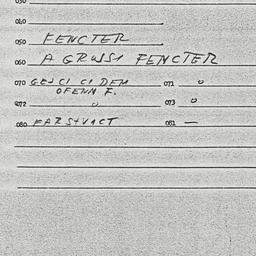 040
050 FENCTER
060 A GRUSSA FENCTER
070 GEJCI CI DEM 071 0
OFENN F.
072 0 073 0
080 FARSTVACT 081 —